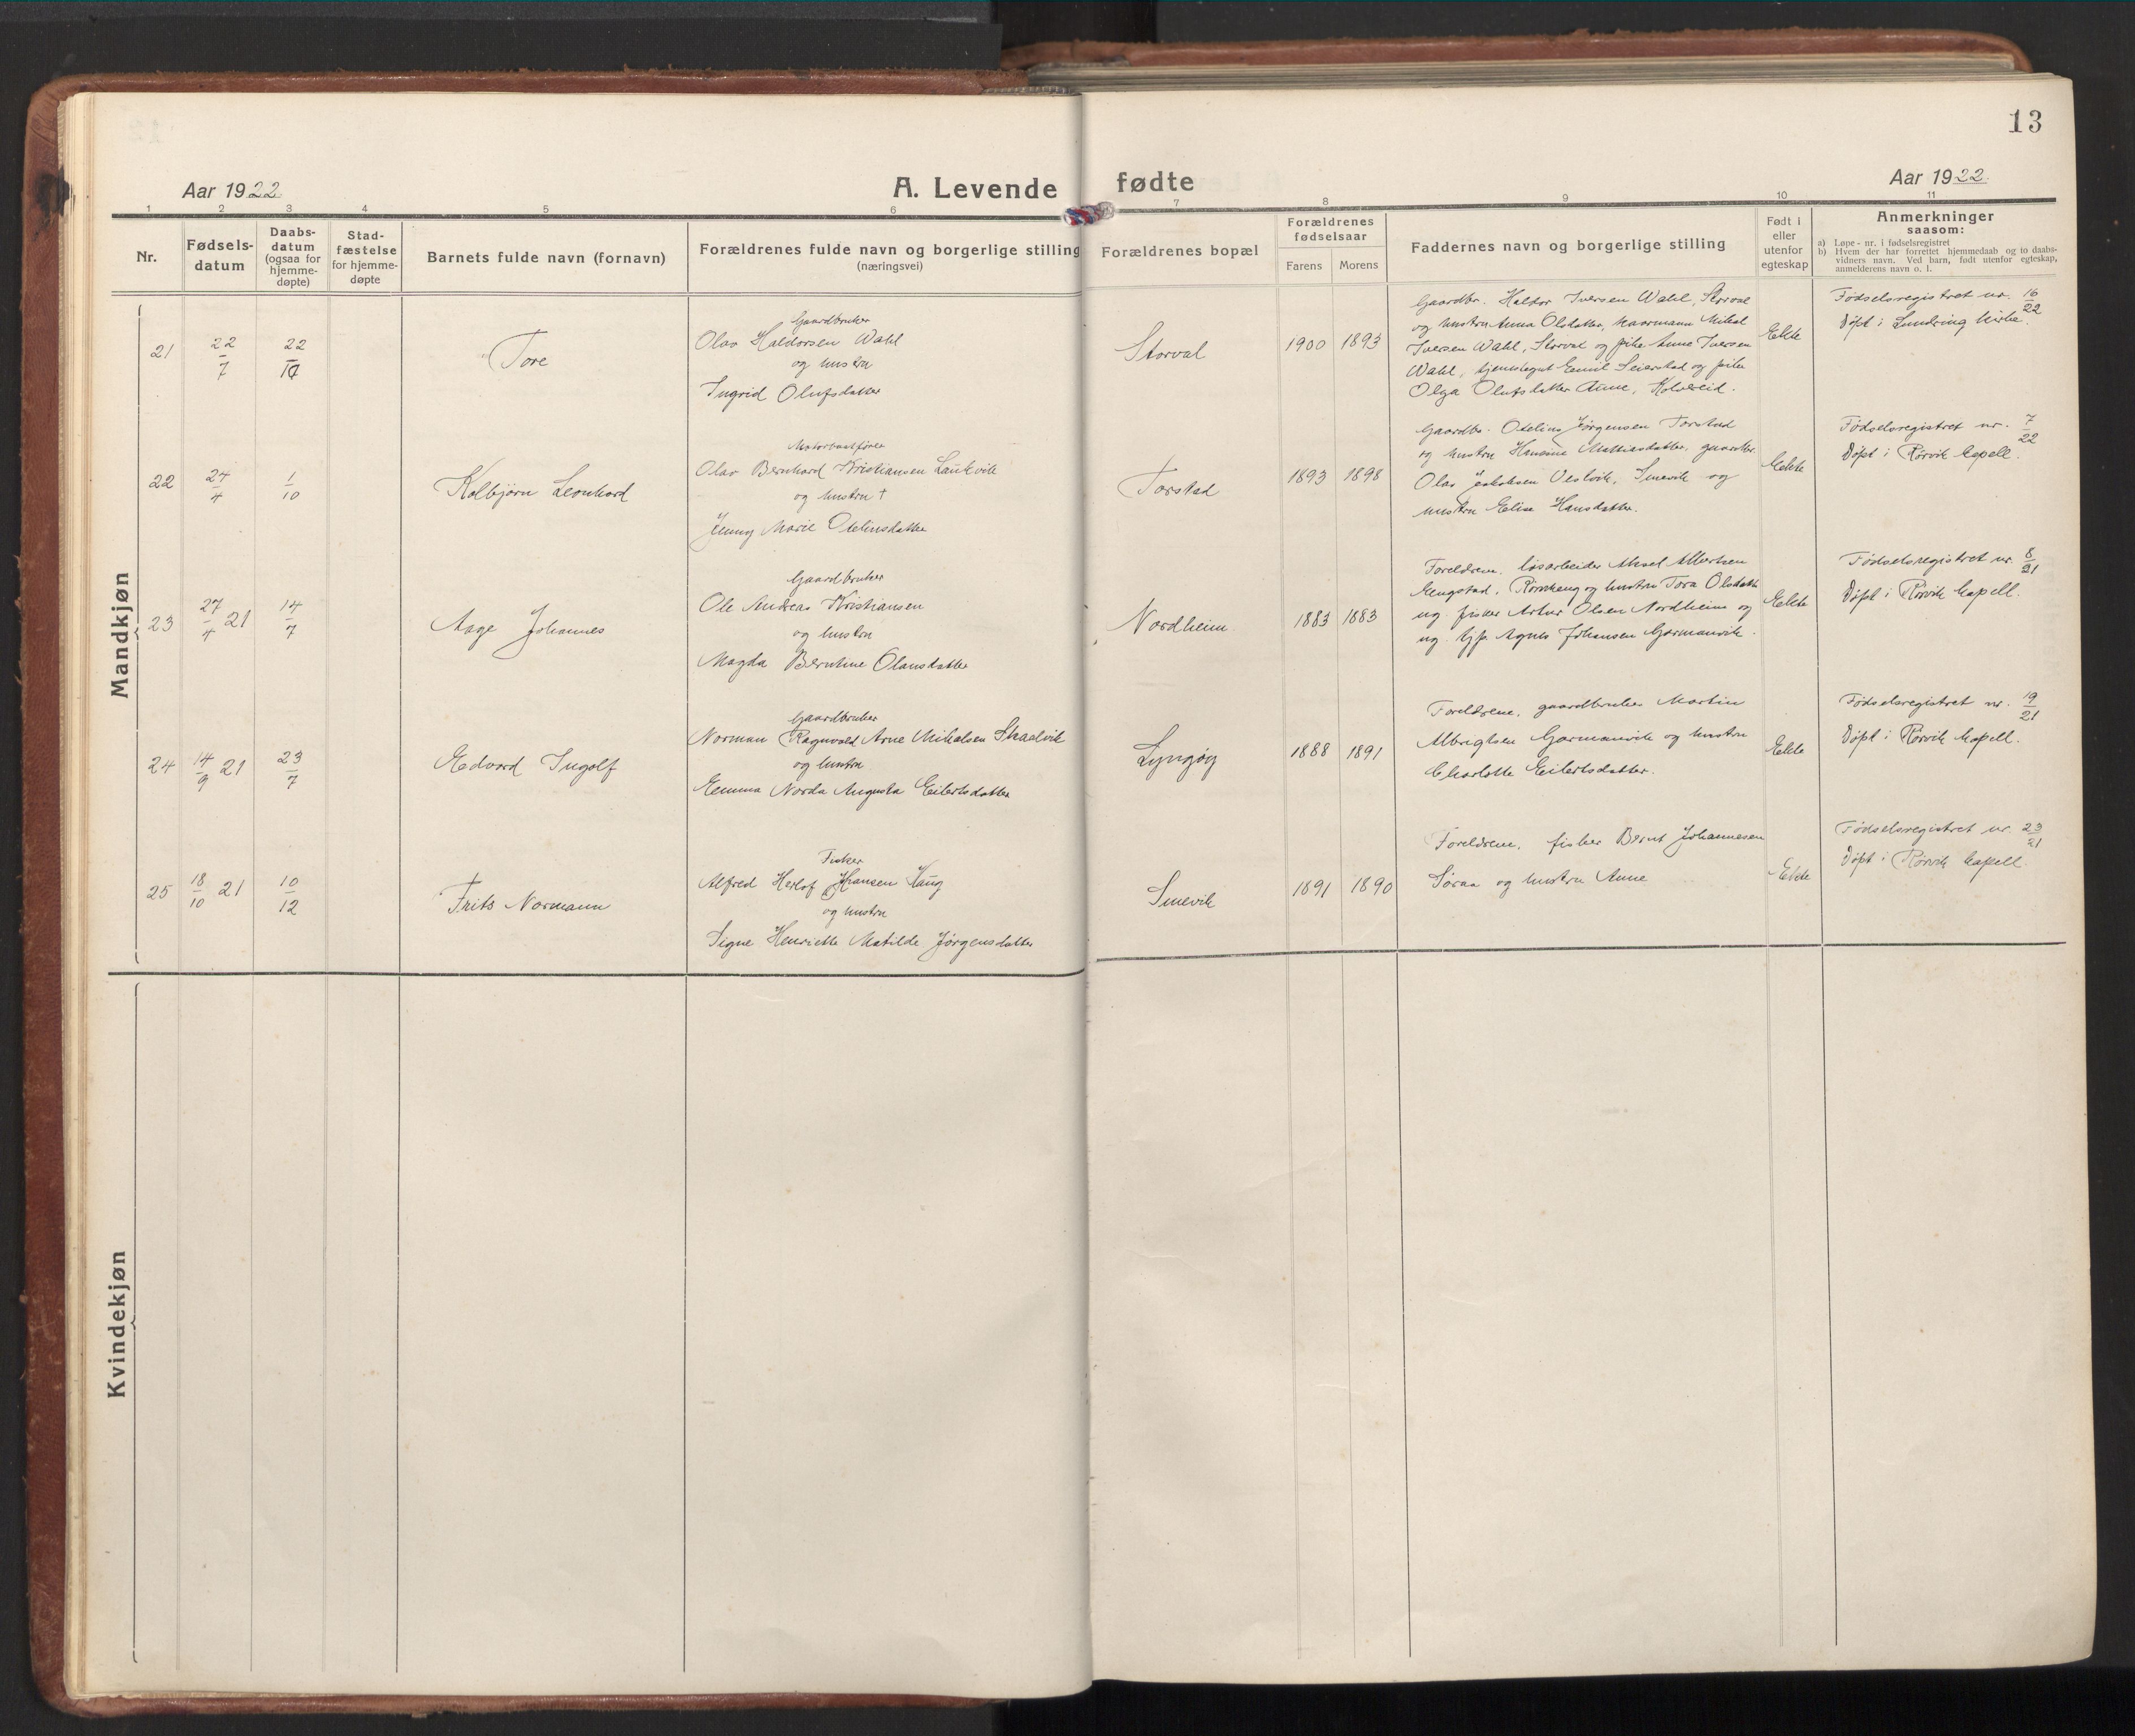 13
Aar 1922.
A. Levende fødte
Aar 1922.
1 2 3 4 5 6 7 8 9 10 11
Nr.
Fødsels-
datum
Daabs-
datum
(ogsaa for
hjemme-
døpte)
Stad-
fæstelse
for hjemme-
døpte
Barnets fulde navn (fornavn)
Forældrenes fulde navn og borgerlige stilling
(næringsvei)
Forældrenes bopæl
Forældrenes
fødselsaar
Farens Morens
Faddernes navn og borgerlige stilling
Født i
eller
utenfor
egteskap
Anmerkninger
saasom:
a) Løpe-nr. i fødselsregistret
b) Hvem der har forrettet hjemmedaab og to daabs-
vidners navn. Ved barn, født utenfor egteskap,
anmelderens navn o. l.
Mandkjøn
21 22/7 22/10 Tore
Gaardbruker
Olav Haldorsen Wahl
og hustru
Ingrid Olufsdatter
Storval 1900 1893
Gaardbr. Haldor Iversen Wahl, Storval
og hustru Anna Olsdatter, Mikal
Iversen Wahl, Storval og pike Anne Iversen
Wahl, Emil Seierstad og pike
Olga Olufsdatter Aune, Kolvereid.
Ekte
Fødselsregistret nr. 16/22
Døpt i Lundring kirke.
22 24/4 1/10 Kolbjørn Leonhard
Motorbaatfører
Olav Bernhard Kristiansen Laukvik
og hustru †
Jenny Marie Otelinsdatter
Torstad 1893 1898
Gaardbr. Otelius Jørgensen Torstad
og hustru Hansine Mathiasdatter, gaardbr.
Olav Jakobsen Vestvik, Smevik og
hustru Elise Hansdatter.
Ekte
Fødselsregistret nr. 7/22
Døpt i Rørvik kapell.
23 27/4 21 14/7 Aage Johannes
Gaardbruker
Ole Andreas Kristiansen
og hustru
Magda Berntine Olausdatter
Nordheim. 1883 1883
Foreldrene, løsarbeider Aksel Albertsen
Engstad, og hustru Tora Olsdatter
ug. fisker Artur Olsen Nordheim og
ug. Agnes Johansen Garmanvik.
Ekte
Fødselsregistret nr. 8/21
Døpt i Rørvik kapell.
24 14/9 21 23/7 Edvard Ingolf
Gaardbruker
Norman Ragnvald Arne Mikalsen Skaalvik
og hustru
Emma Norda Augusta Eilertsdatter
Lyngøy 1888 1891
Foreldrene, gaardbruker Martin
Albrigtsen Garmanvik og hustru
Charlotte Eilertsdatter.
Ekte
Fødselsregistret nr. 19/21
Døpt i Rørvik kapell.
25 18/10 21 10/12 Frits Normann
Fisker
Alfred Herlof Hansen Haug
og hustru
Signe Henriette Matilde Jørgensdatter
Smevik 1891 1890
Foreldrene, fisker Bernt Johannesen
Søraa og hustru Anne
Ekte
Fødselsregistret nr. 23/21
Døpt i Rørvik kapell.
Kvindekjøn